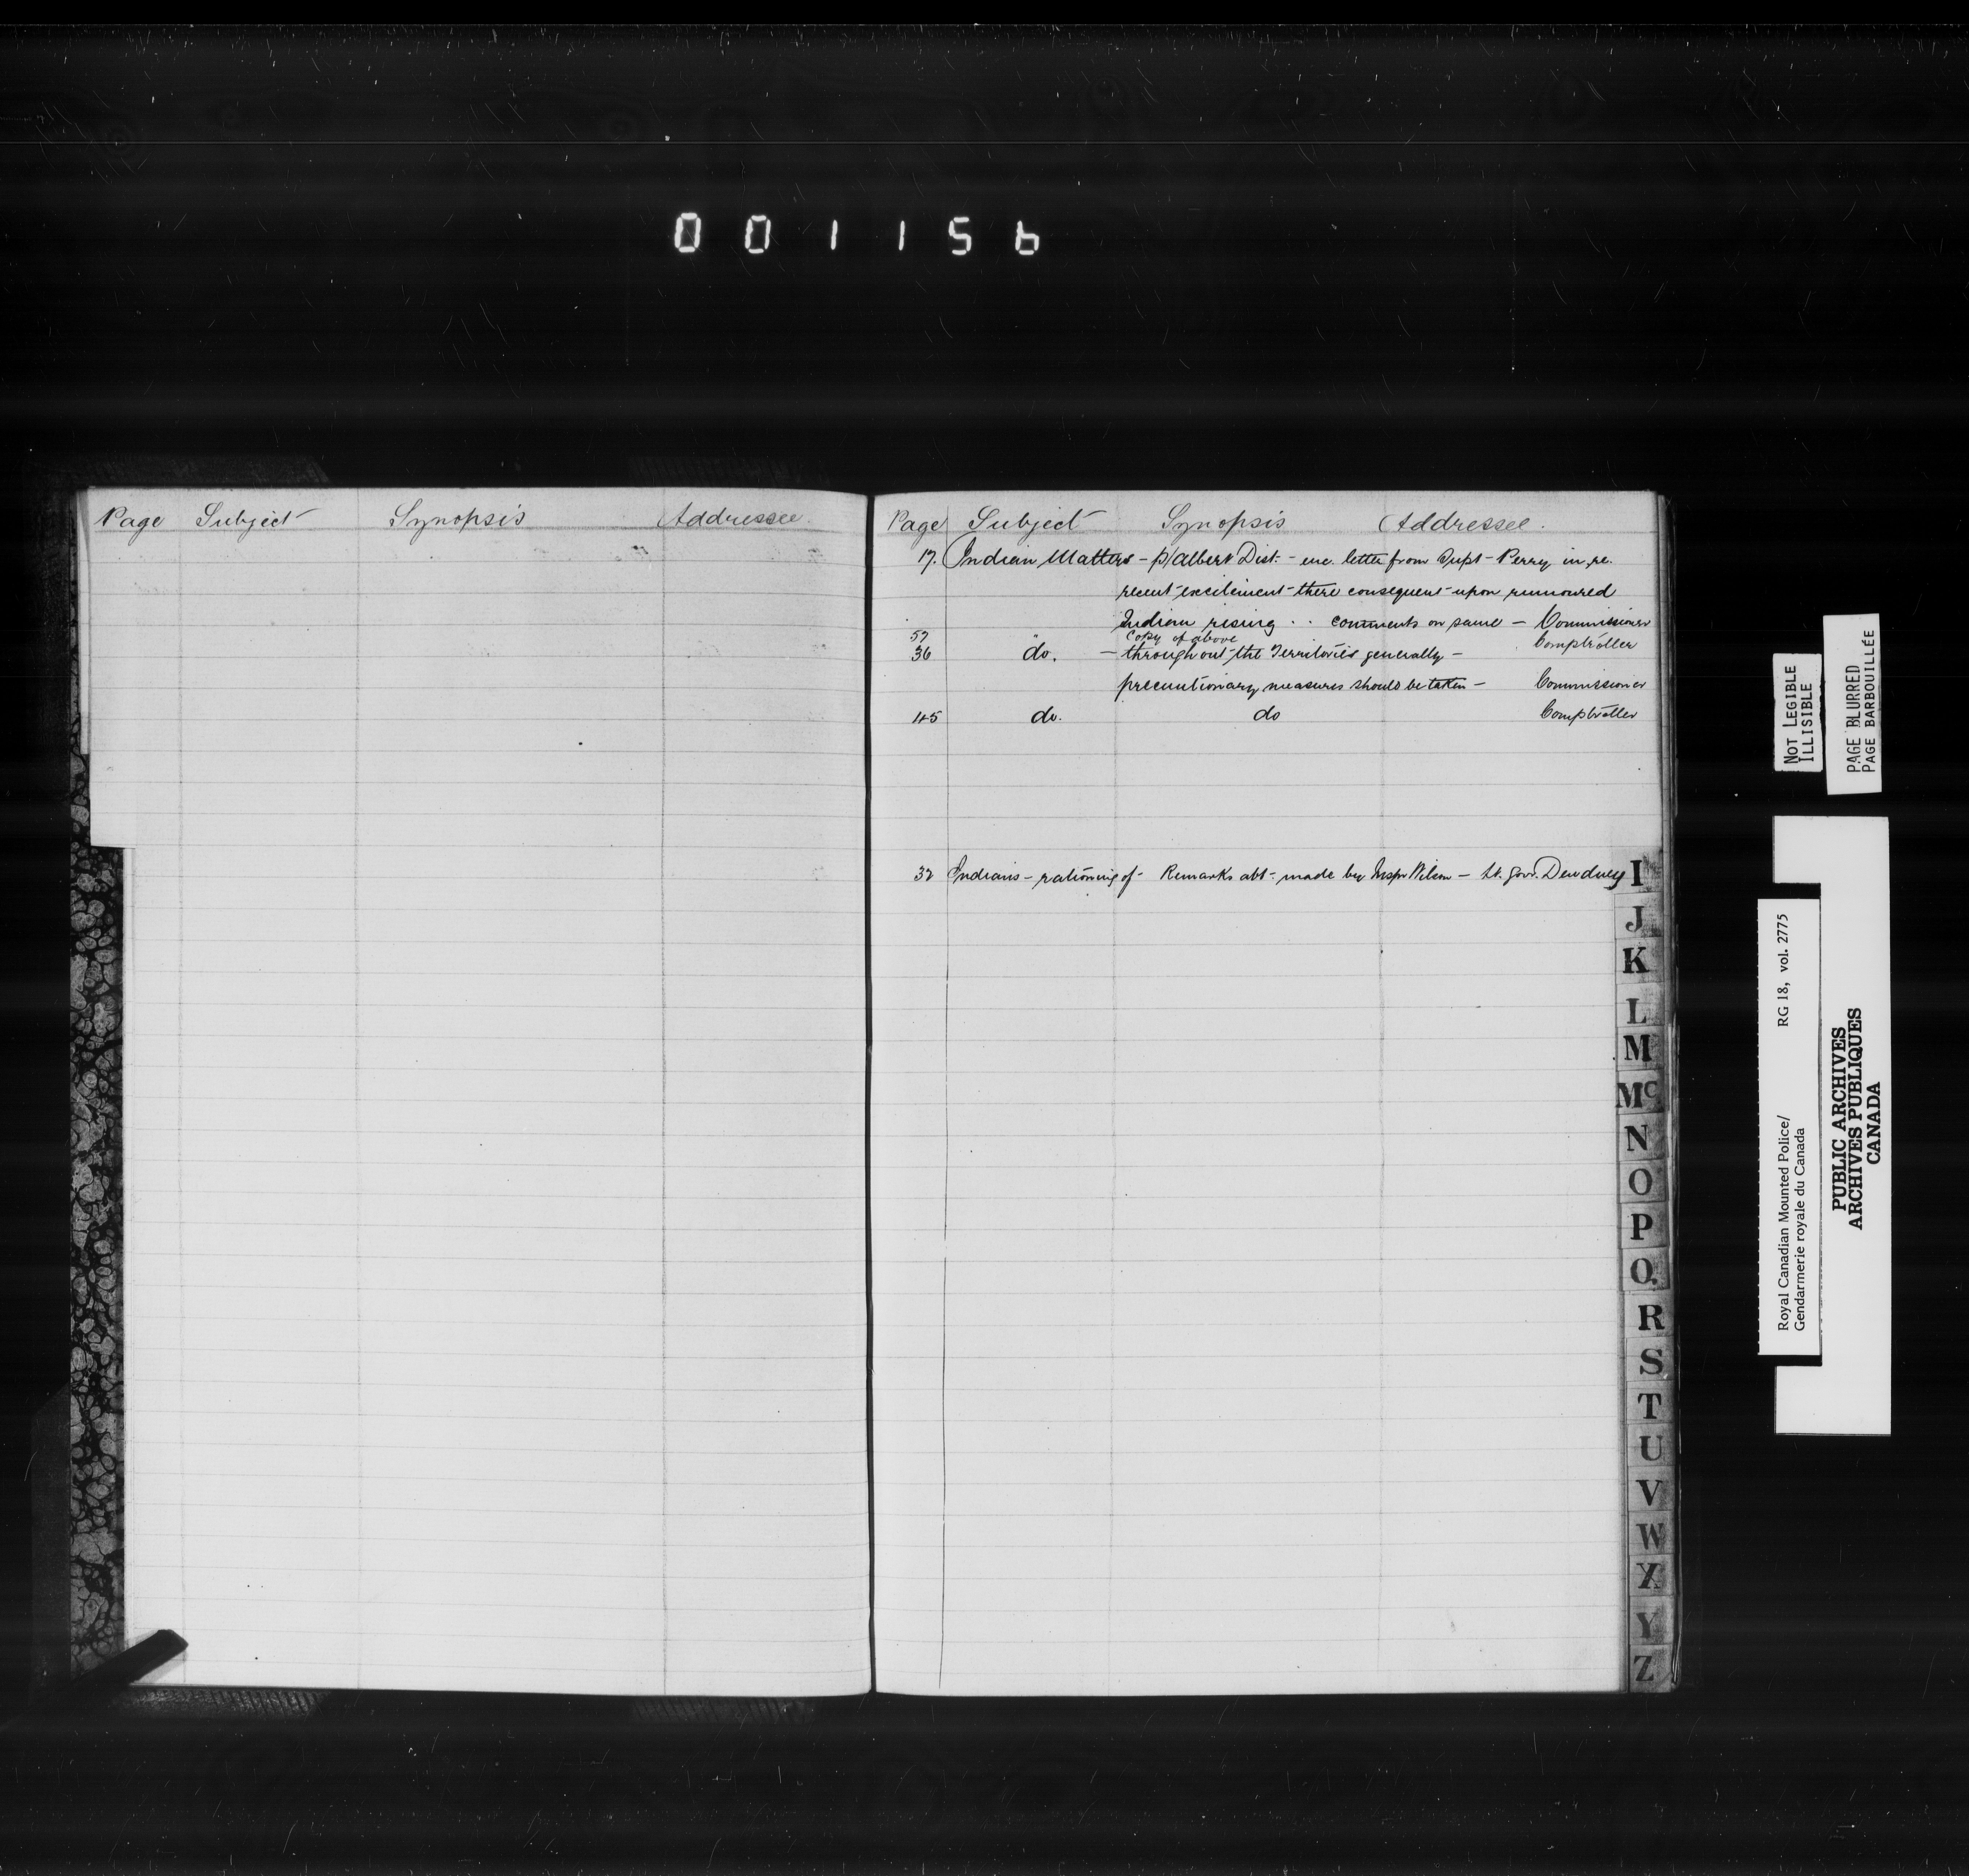 001156
Page Subject Synopsis Addressee.
Page Subject Synopsis Addressee.
17. Indian Matters - P/Albert Dist: - enc. letter from Supt - Perry in re.
recent excitement there consequent upon rumoured
Indian rising . . comments on same - Commissioner
57 " Copy of above Comptroller
36 do. - throughout the Territories generally -
precautionary measures should be taken - Commissioner
45 do. do Comptroller
32 Indians - rationing of - Remarks abt. made by Inspr Wilson - Lt. Gov. Dewdney
I
J
K
L
M
Mc
N
O
P
Q.
R
S
T
U
V
W
X
Y
Z
NOT LEGIBLE
ILLISIBLE
PAGE BLURRED
PAGE BARBOUILLÉE
Royal Canadian Mounted Police/ RG 18, vol. 2775
Gendarmerie royale du Canada
PUBLIC ARCHIVES
ARCHIVES PUBLIQUES
CANADA